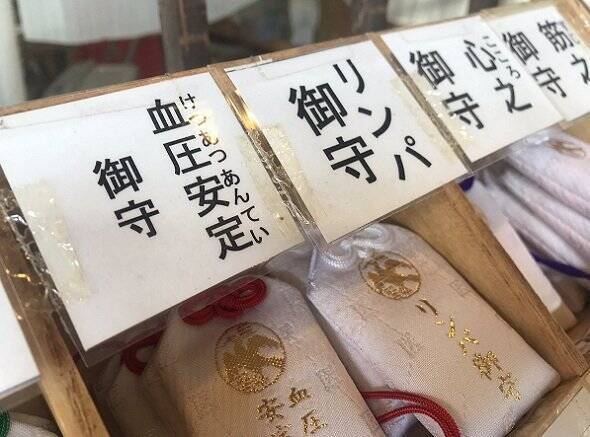 血圧安定
けつあつあんてい
御守
リンパ
御守
心之
こころ
御守
筋之
御守
血圧
安
リンパ御守